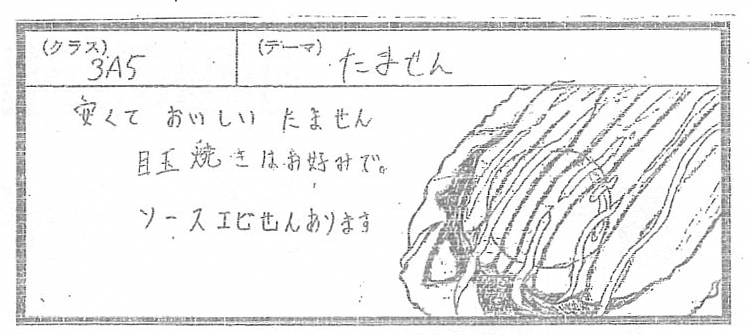 (クラス) 3A5
(テーマ) たません
安くて おいしい たません
目玉焼きはお好みで。
ソースエビせんあります